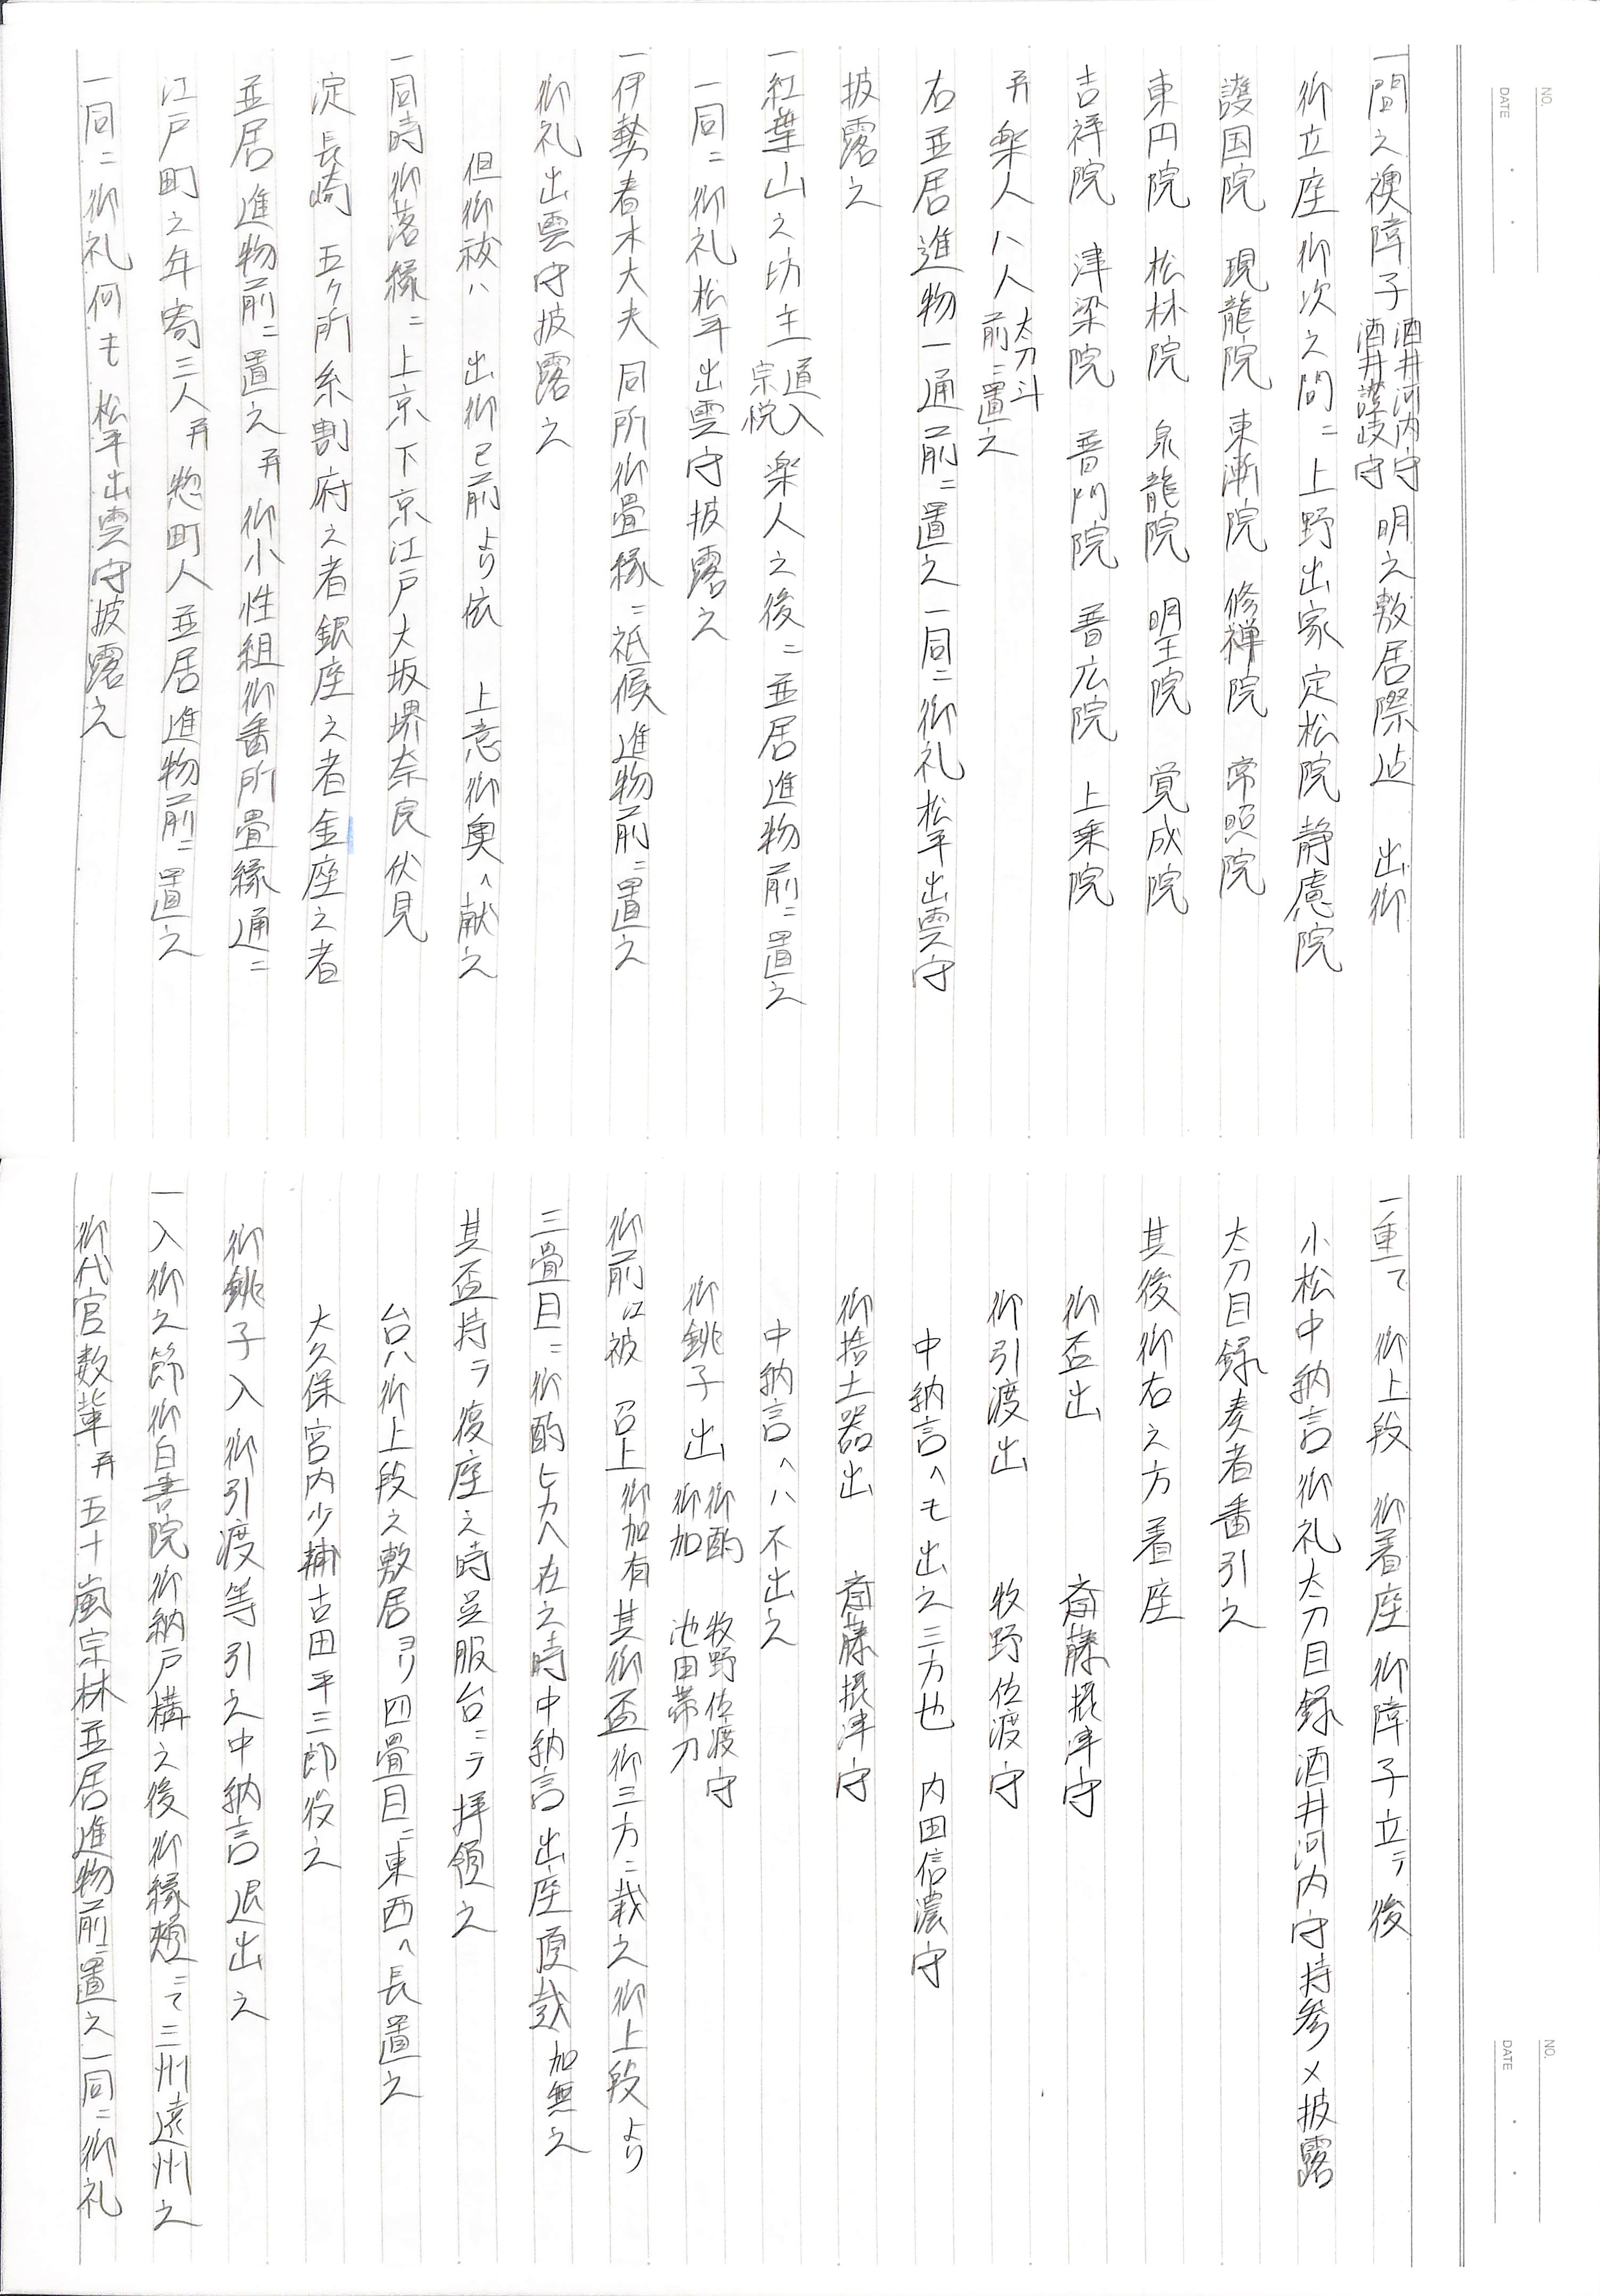 NO.
DATE
一間之襖障子 酒井河内守 酒井讃岐守 明之敷居際迄 出御
御立座御次之間ニ上野出家定松院静慮院
護国院 現龍院 東漸院 修禅院 常照院
東円院 松林院 泉龍院 明王院 覚成院
吉祥院 津梁院 普門院 普広院 上乗院
并楽人八人 太刀斗 前ニ置之
右並居進物一通前ニ置之一同ニ御礼松平出雲守
披露之
一紅葉山之坊主 道入 宗悦 楽人之後ニ並居進物前ニ置之
一同ニ御礼松平出雲守披露之
一伊勢者木大夫同所御畳縁ニ祇候進物前ニ置之
御礼出雲守披露之
但御祓ハ 出御已前より依 上意御奥へ献之
一同時御落縁ニ上京下京江戸大坂堺奈良伏見
淀長崎 五ケ所糸割府之者銀座之者金座之者
並居進物前ニ置之并御小性組御番所畳縁通ニ
江戸町之年寄三人并惣町人並居進物前ニ置之
一同ニ御礼何も松平出雲守披露之
NO.
DATE
一重て 御上段 御着座御障子立テ後
小松中納言御礼太刀目録酒井河内守持参〆披露
太刀目録奏者番引之
其後御右之方着座
御盃出 斎藤摂津守
御引渡出 牧野佐渡守
中納言へモ出之三方也 内田信濃守
御捨土器出 斎藤摂津守
中納言へハ不出之
御銚子出 御酌 牧野佐渡守 御加 池田帯刀
御前江被 召上御加有其御盃御三方ニ載之御上段より
三畳目ニ御酌ヒカヘ在之時中納言出座頂戴加無之
其盃持テ復座之時呉服台ニテ拝領之
台ハ御上段之敷居ヨリ四畳目ニ東西へ長置之
大久保宮内少輔吉田平三郎役之
御銚子入御引渡等引之中納言退出之
一入御之節御白書院御納戸構之後御縁頬ニて三州遠州之
御代官数輩并五十嵐宗林並居進物前ニ置之一同ニ御礼